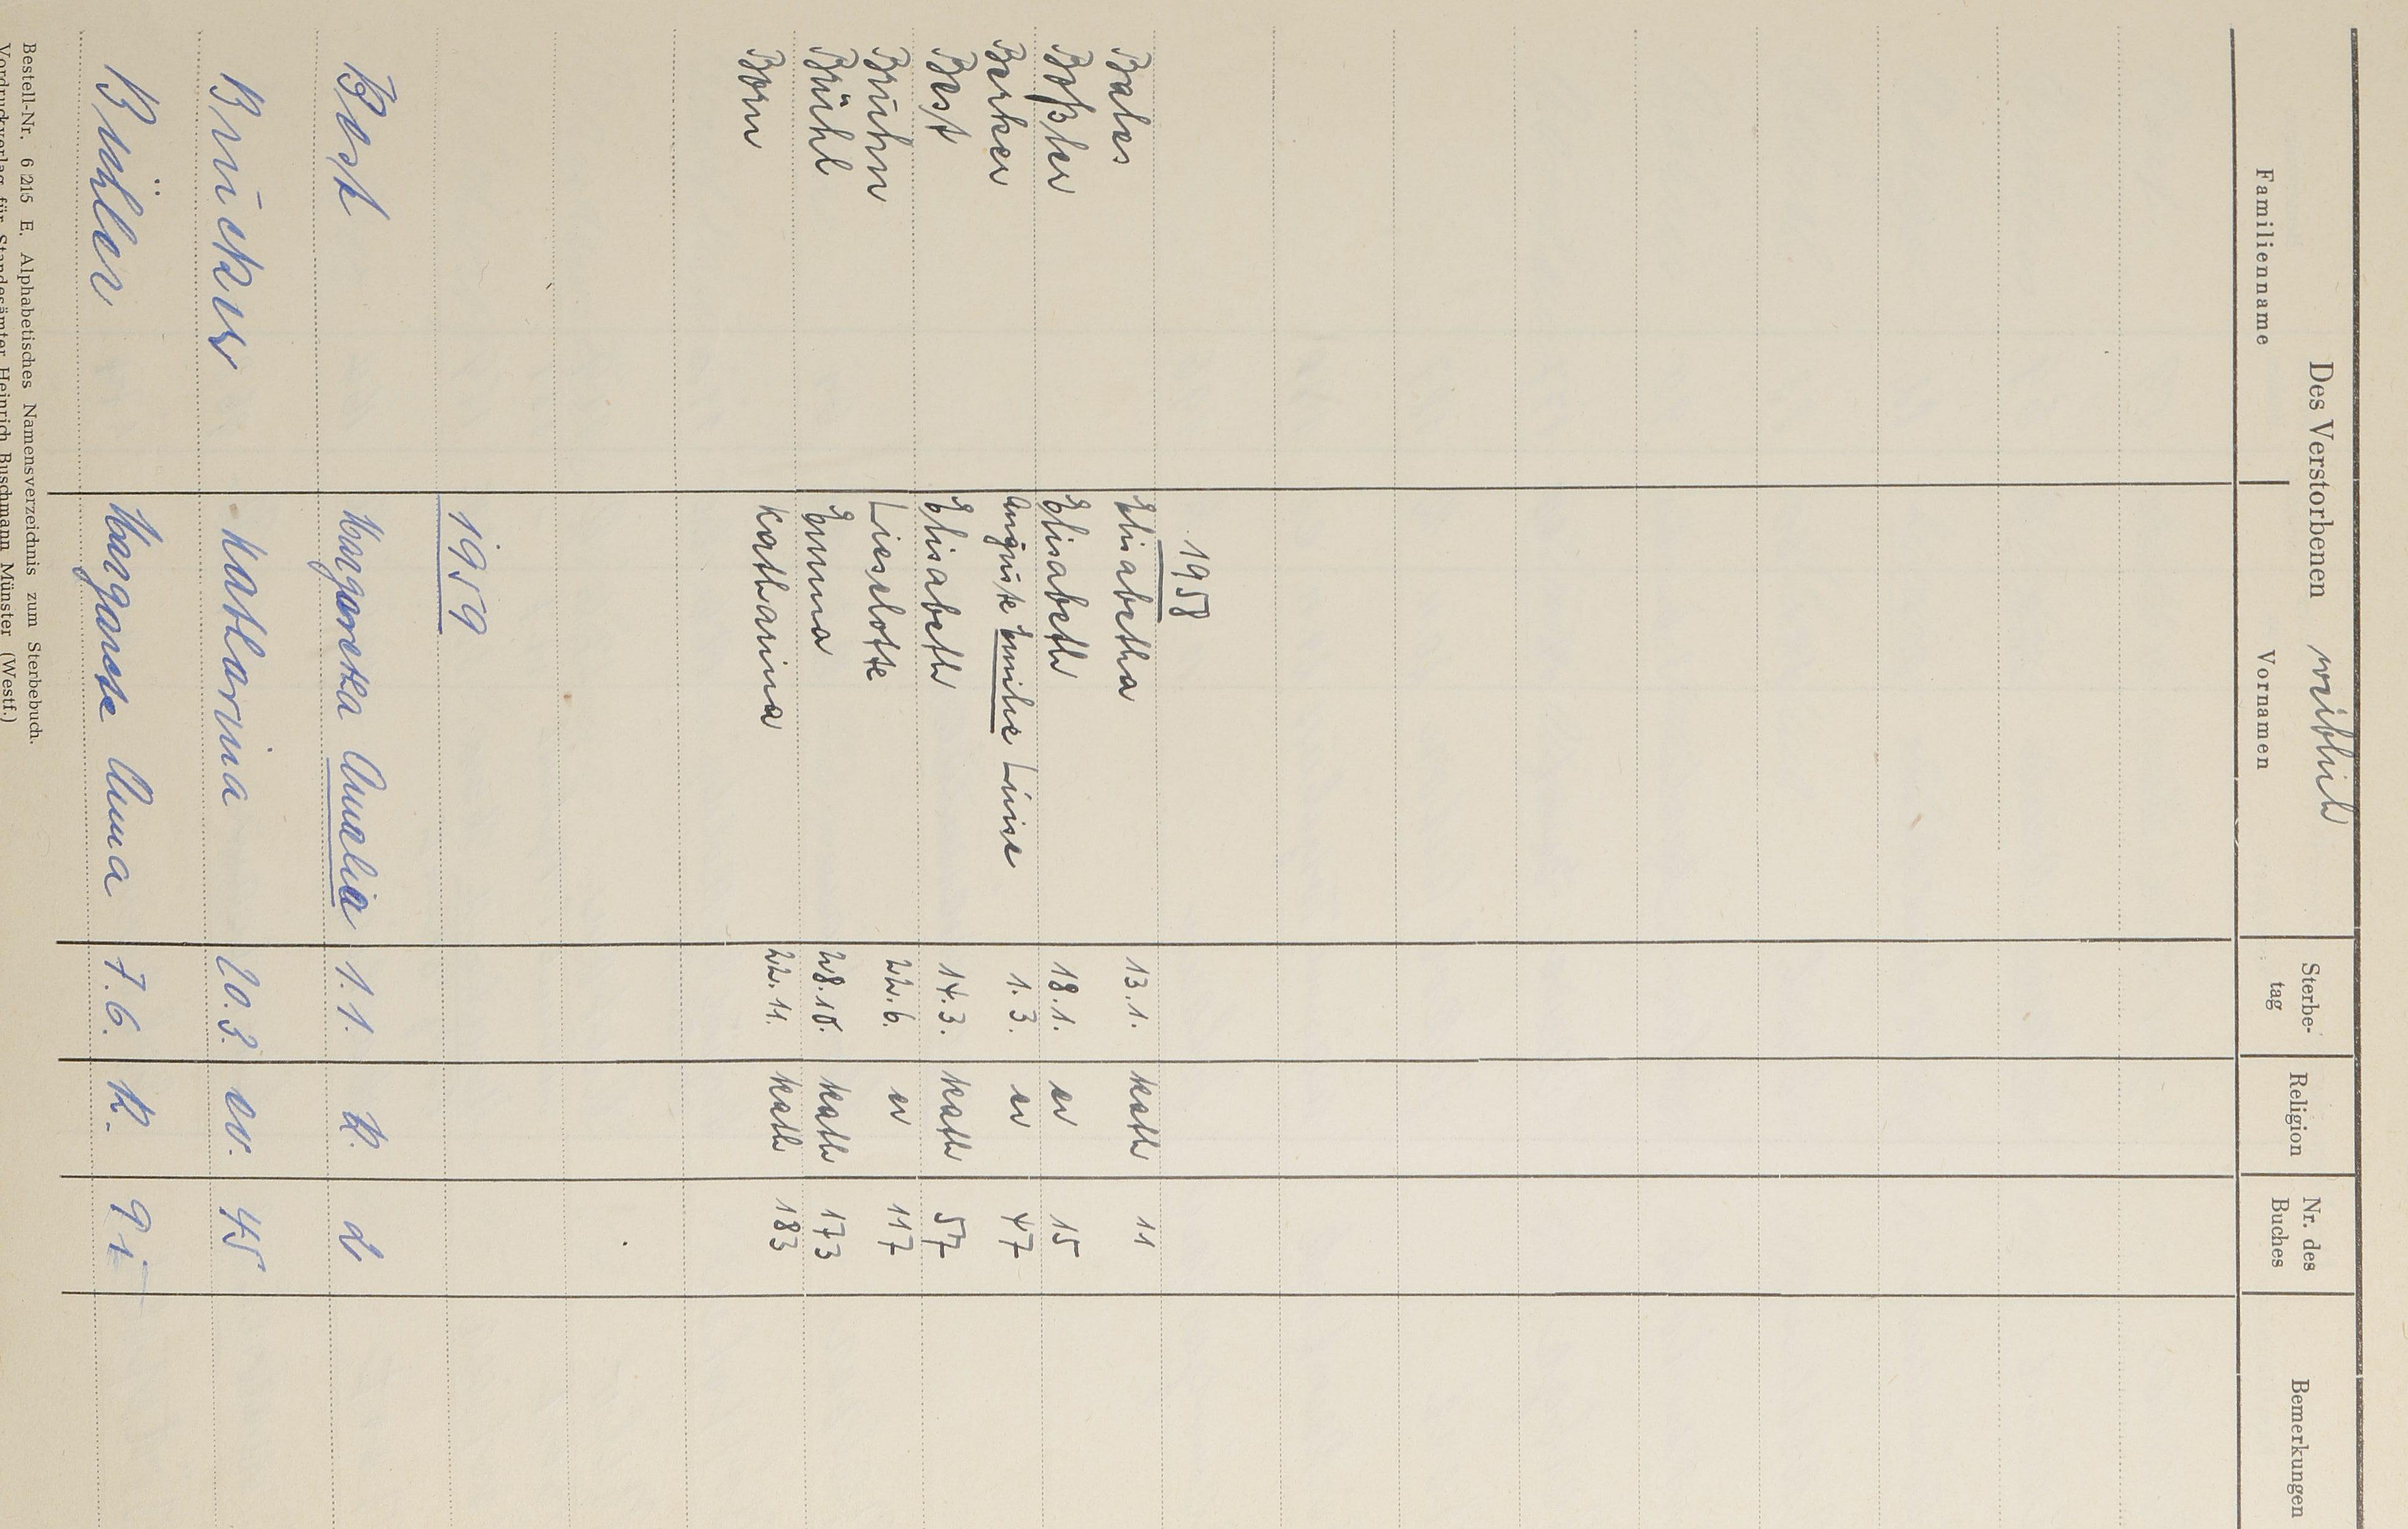 Des Verstorbenen weiblich
Familienname Vornamen Sterbe-tag Religion Nr. des Buches Bemerkungen
1958
Bales Elisabetha 13.1. kath 11
Boßler Elisabeth 18.1. ev 15
Berker Auguste Emilie Luise 1.3. ev 47
Best Elisabeth 14.3. kath 57
Bruhn Lieselotte 22.6. ev 117
Brühl Emma 28.10. kath 173
Born Katharina 22.11. kath 183
1959
Best Margareta Amalia 1.1. k. 2
Brucker Katharina 20.3. ev. 45
Bühler Margarete Anna 7.6. k. 91
Bestell-Nr. 6215 E. Alphabetisches Namensverzeichnis zum Sterbebuch.
Vordruckverlag für Standesämter Heinrich Buschmann Münster (Westf.)